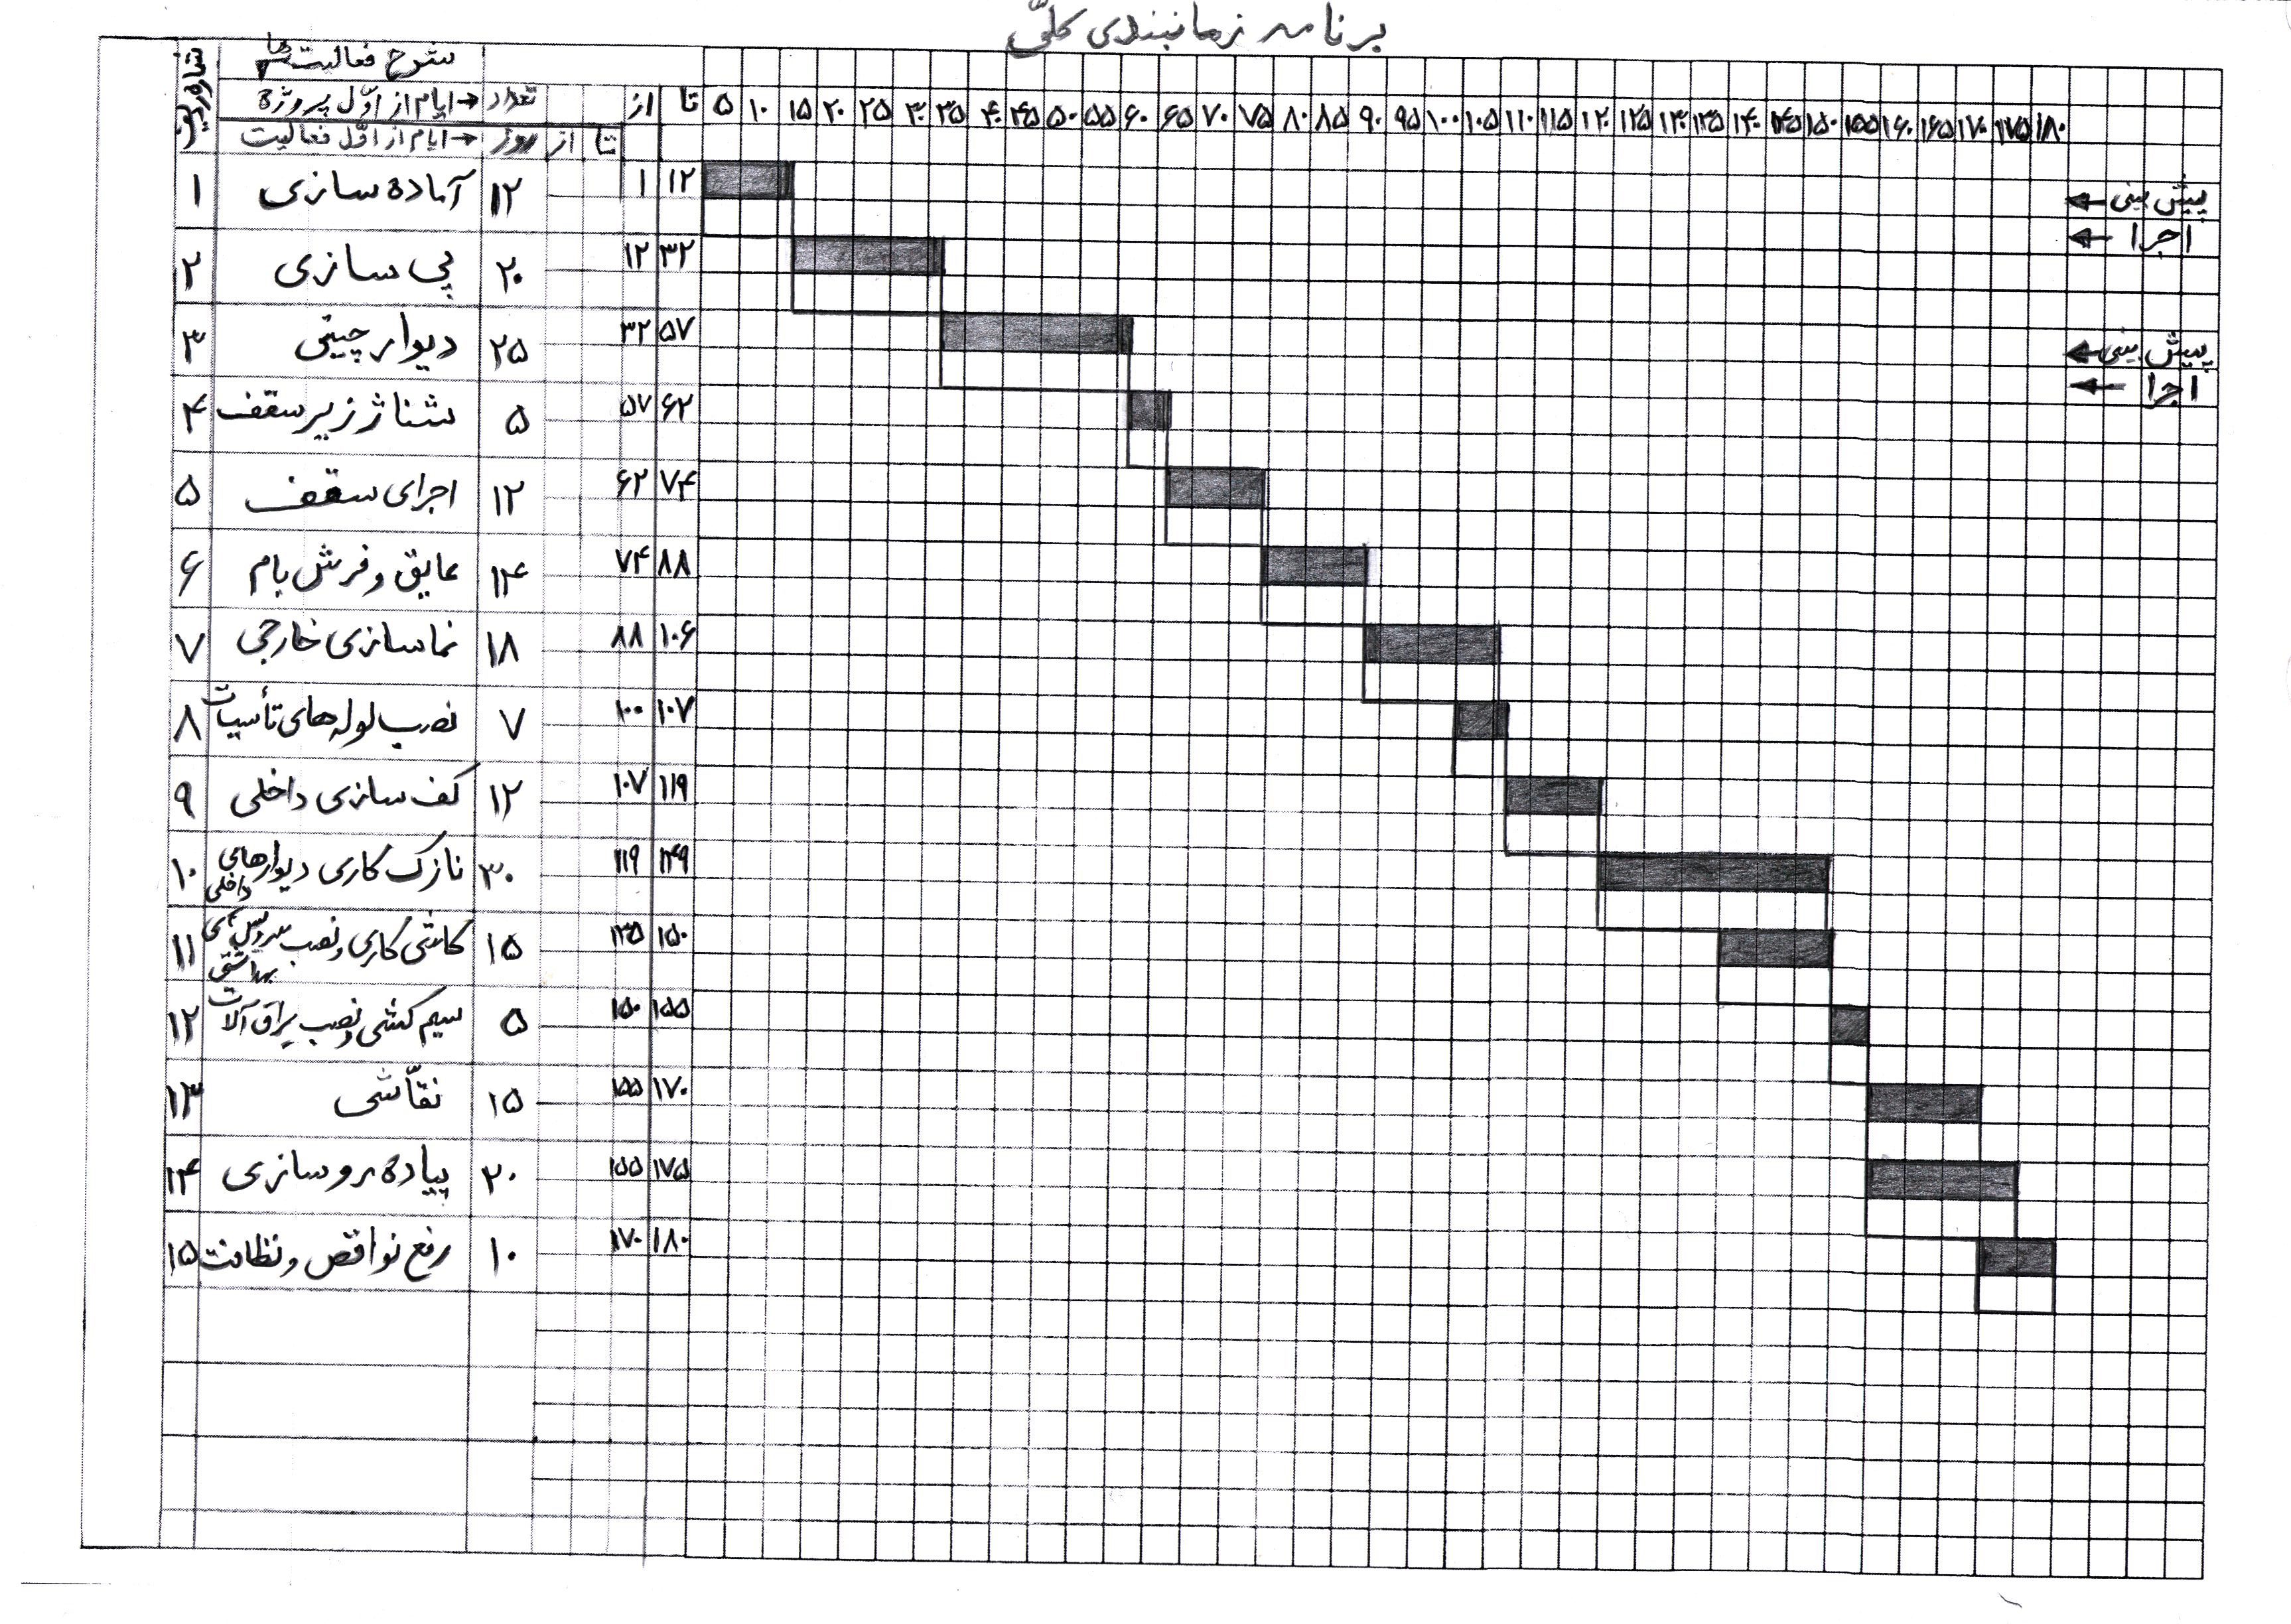 برنامه زمانبندی کلّی
شماره ردیف
شرح فعالیت ها
ایام از اوّل پروژه → تعداد از تا ۵ ۱۰ ۱۵ ۲۰ ۲۵ ۳۰ ۳۵ ۴۰ ۴۵ ۵۰ ۵۵ ۶۰ ۶۵ ۷۰ ۷۵ ۸۰ ۸۵ ۹۰ ۹۵ ۱۰۰ ۱۰۵ ۱۱۰ ۱۱۵ ۱۲۰ ۱۲۵ ۱۳۰ ۱۳۵ ۱۴۰ ۱۴۵ ۱۵۰ ۱۵۵ ۱۶۰ ۱۶۵ ۱۷۰ ۱۷۵ ۱۸۰
ایام از اوّل فعالیت → روز از تا
۱ آماده سازی ۱۲ ۱ ۱۲
پیش بینی ←
اجرا ←
۲ پی سازی ۲۰ ۱۲ ۳۲
۳ دیوار چینی ۲۵ ۳۲ ۵۷
پیش بینی ←
اجرا ←
۴ شناژ زیر سقف ۵ ۵۷ ۶۲
۵ اجرای سقف ۱۲ ۶۲ ۷۴
۶ عایق و فرش بام ۱۴ ۷۴ ۸۸
۷ نماسازی خارجی ۱۸ ۸۸ ۱۰۶
۸ نصب لوله های تأسیسات ۷ ۱۰۰ ۱۰۷
۹ کف سازی داخلی ۱۲ ۱۰۷ ۱۱۹
۱۰ نازک کاری دیوارهای داخلی ۳۰ ۱۱۹ ۱۴۹
۱۱ کاشی کاری و نصب سرویس های بهداشتی ۱۵ ۱۳۵ ۱۵۰
۱۲ سیم کشی و نصب یراق آلات ۵ ۱۵۰ ۱۵۵
۱۳ نقّاشی ۱۵ ۱۵۵ ۱۷۰
۱۴ پیاده رو سازی ۲۰ ۱۵۵ ۱۷۵
۱۵ رفع نواقص و نظافت ۱۰ ۱۷۰ ۱۸۰